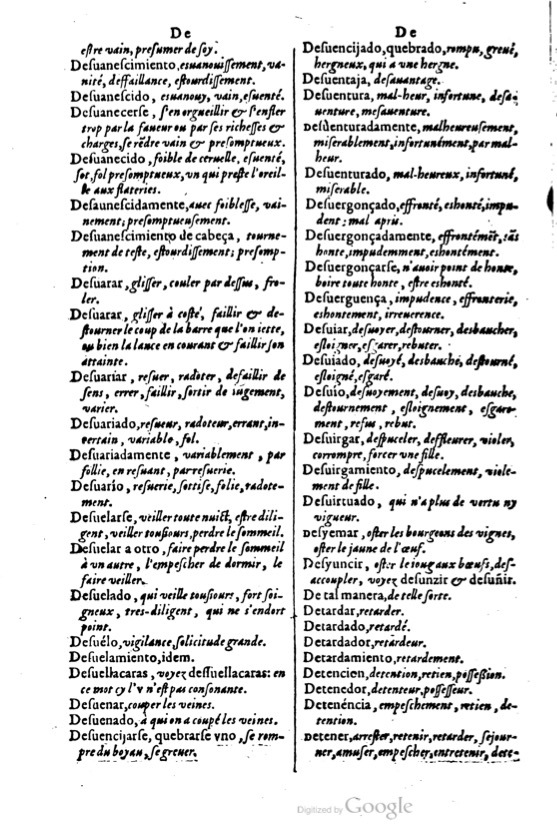 De
eſtre vain, preſumer de ſoy.
Deſuaneſcimiento, esuanouiſſement, va-
nité, deffaillance, eſtourdiſſement.
Deſuaneſcido, esuanouy, vain, eſuenté.
Deſuanecerſe, s'en orgueillir & s'enfler
trop par la faueur ou par ſes richeſſes &
charges, ſe rēdre vain & preſomptueux.
Deſuanecido, foible de ceruelle, eſuenté,
ſot, fol preſomptueux, un qui preſte l'oreil-
le aux flateries.
Deſaunefcidamente, auec foibleſſe, vai-
nement; preſomptueuſement.
Deſuaneſcimiento de cabeça, tourne-
ment de teſte, eſtourdiſſement; preſomp-
tion.
Deſuarar, gliſſer, couler par deſſus, fro-
ler.
Deſuarar, gliſſer à coſté, faillir & de-
ſtourner le coup de la barre que l'on iette,
ou bien la lance en courant & faillir ſon
attainte.
Deſuariar, reſuer, radoter, defaillir de
ſens, errer, faillir, ſortir de iugement,
varier.
Deſuariado, reſueur, radoteur, errant, in-
certain, variable, fol.
Deſuariadamente, variablement, par
follie, en reſuant, par reſuerie.
Deſuarío, reſuerie, ſottiſe, folie, radote-
ment.
Deſuelarſe, veiller toute nuict, eſtre dili-
gent, veiller touſiours, perdre le ſommeil.
Deſuelar a otro, faire perdre le ſommeil
à un autre, l'empeſcher de dormir, le
faire veiller.
Deſuelado, qui veille touſiours, fort ſoi-
gneux, tres-diligent, qui ne s'endort
point.
Deſuélo, vigilance, ſolicitude grande.
Deſuelamiento, idem.
Deſuellacaras, voyez deſſuellacaras: en
ce mot cy l'v n'eſt pas conſonante.
Deſuenar, couper les veines.
Deſuenado, à qui on a coupé les veines.
Deſuencijarſe, quebrarſe vno, ſe rom-
pre du boyau, ſe greuer.
De
Deſuencijado, quebrado, rompu, greué,
hergneux, qui a une hergne.
Deſuentaja, deſauantage.
Deſuentura, mal-heur, infortune, deſa-
uenture, meſauenture.
Deſuenturadamente, malheureuſement,
miſerablement, infortunément, par mal-
heur.
Deſuenturado, mal-heureux, infortuné,
miſerable.
Deſuergonçado, effronté, eshonté, impu-
dent; mal apris.
Deſuergonçadamente, effrontémēt, ſās
honte, impudemment, eshontément.
Deſuergonçarſe, n'auoir point de honte,
boire toute honte, eſtre eshonté.
Deſuerguença, impudence, effronterie,
eshontement, irreuerence.
Deſuiar, deſuoyer, deſtourner, desbaucher,
eſloigner, eſgarer, rebuter.
Deſuiado, deſuoyé, desbauché, deſtourné,
eſloigné, eſgaré.
Deſuio, deſuoyement, deſuoy, desbauche,
deſtournement, eſloignement, eſgare-
ment, refus, rebut.
Deſuirgar, deſpuceler, deffleurer, violer,
corrompre, forcer une fille.
Deſuirgamiento, deſpucelement, viole-
ment de fille.
Deſuirtuado, qui n'a plus de vertu ny
vigueur.
Deſyemar, oſter les bourgeons des vignes,
oſter le jaune de l'œuf.
Deſyuncir, oſter le ioug aux bœufs, deſ-
accoupler, voyez deſunzir & deſuñir.
De tal manera, de telle ſorte.
Detardar, retarder.
Detardado, retardé.
Detardador, retardeur.
Detardamiento, retardement.
Detencien, detention, retien, poſſeßion.
Detenedor, detenteur, poſſeſſeur.
Detenéncia, empeſchement, retien, de-
tention.
Detener, arreſter, retenir, retarder, ſejour-
ner, amuſer, empeſcher, entretenir, dete-
Digitized by Google